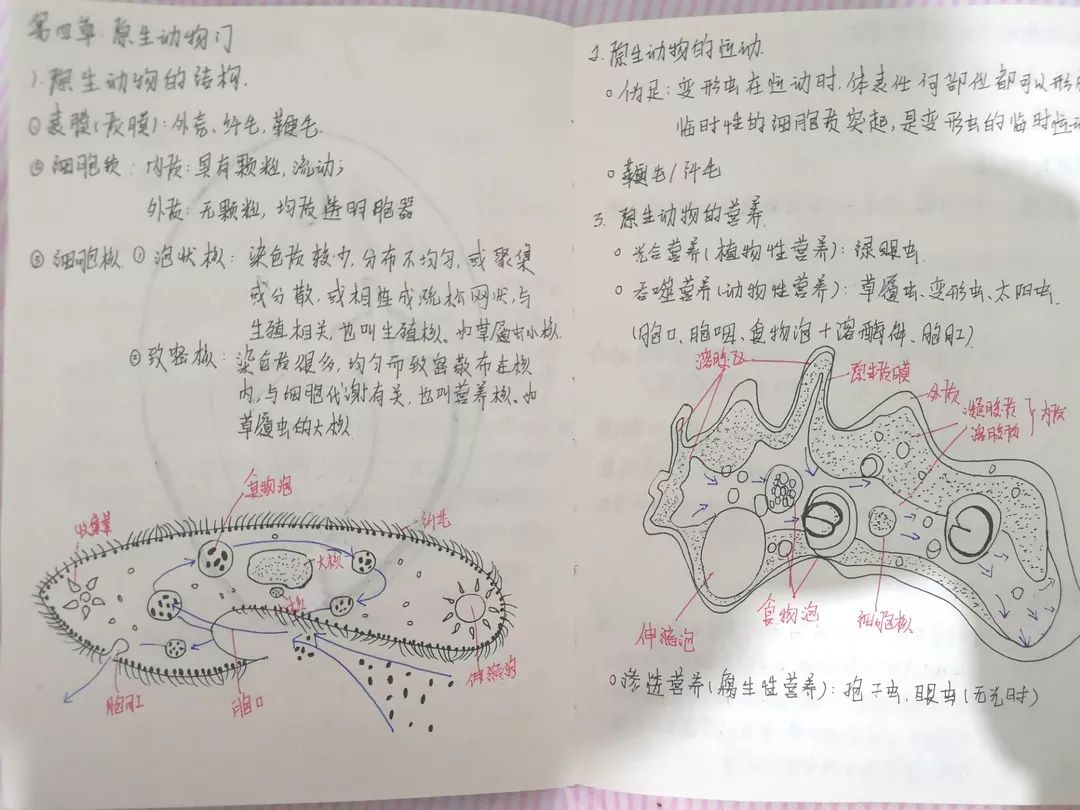 第四章 原生动物门
1. 原生动物的结构.
① 表膜(质膜): 外壳、纤毛, 鞭毛.
② 细胞质: 内质: 具有颗粒, 流动;
外质: 无颗粒, 均质透明胞器
③ 细胞核 ① 泡状核: 染色质较少, 分布不均匀, 或聚集
或分散, 或相连成疏松网状, 与
生殖相关, 也叫生殖核. 如草履虫小核.
② 致密核: 染色质很多, 均匀而致密散布在核
内, 与细胞代谢有关, 也叫营养核. 如
草履虫的大核
食物泡
收集管
纤毛
大核
小核
伸缩泡
胞肛
胞口
2. 原生动物的运动.
伪足: 变形虫在运动时, 体表任何部位都可以形
临时性的细胞质突起, 是变形虫的临时运动
鞭毛/纤毛
3. 原生动物的营养.
光合营养(植物性营养): 绿眼虫.
吞噬营养(动物性营养): 草履虫、变形虫、太阳虫.
(胞口、胞咽、食物泡+溶酶体、胞肛).
原生质膜
外质
凝胶质
溶胶质
内质
伸缩泡
食物泡
细胞核
渗透营养(腐生性营养): 孢子虫, 眼虫(无光时)